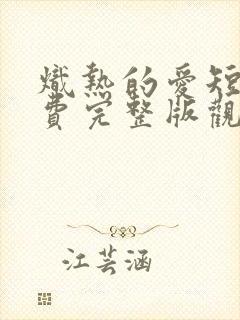 熾熱的愛短
費完整版觀
江芸涵